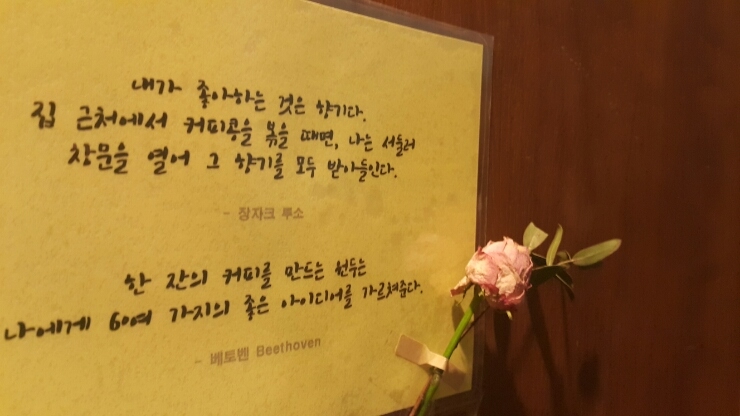 내가 좋아하는 것은 향기다.
집 근처에서 커피콩을 볶을 때면, 나는 서둘러
창문을 열어 그 향기를 모두 받아들인다.
- 장자크 루소
한 잔의 커피를 만드는 원두는
나에게 60여 가지의 좋은 아이디어를 가르쳐준다.
- 베토벤 Beethoven